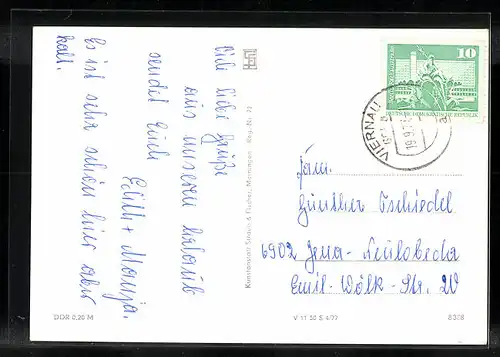 Viele liebe Grüße
aus unserem Urlaub
sendet Euch
Edith + Manuja.
Es ist sehr schön hier aber
kalt.
10
DEUTSCHE DEMOKRATISCHE REPUBLIK
VIERNAU
Fam.
Günther Tschiedel
6902 Jena-Neulobeda
Emil-Wölk-Str. 20
DDR 0,20 M
V 11 50 S 4/77
8328